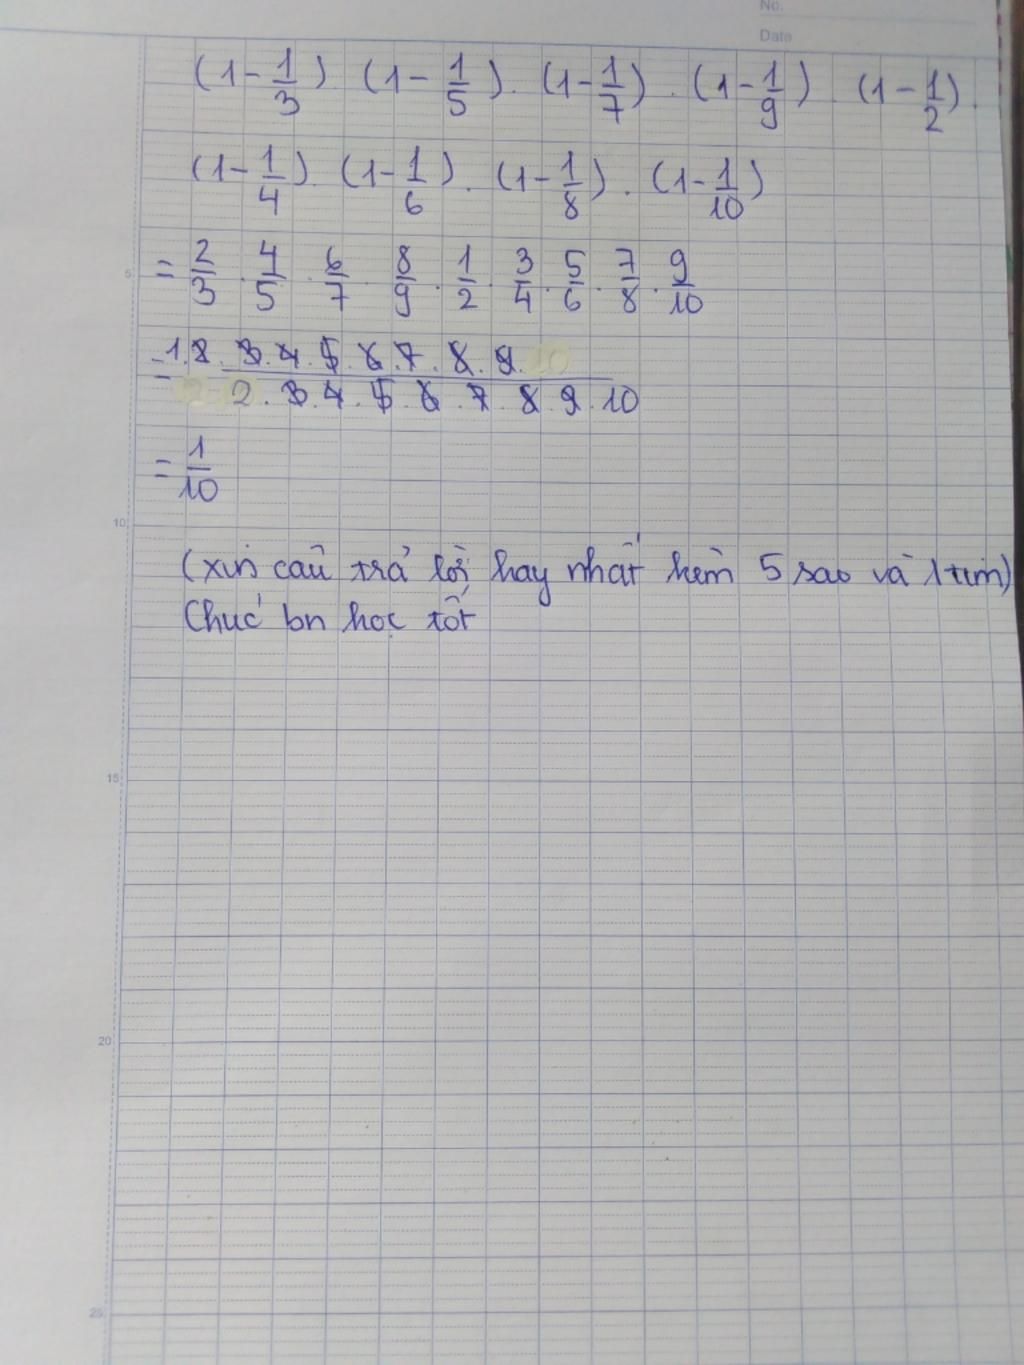 No.
Date
(1 - 1/3) . (1 - 1/5) . (1 - 1/7) . (1 - 1/9) . (1 - 1/2) .
(1 - 1/4) . (1 - 1/6) . (1 - 1/8) . (1 - 1/10)
5
= 2/3 . 4/5 . 6/7 . 8/9 . 1/2 . 3/4 . 5/6 . 7/8 . 9/10
= 1.2.3.4.5.6.7.8.9.10
2.3.4.5.6.7.8.9.10
= 1/10
10
(xin câu trả lời hay nhất kèm 5 sao và 1 tim)
Chúc bn học tốt
15
20
25